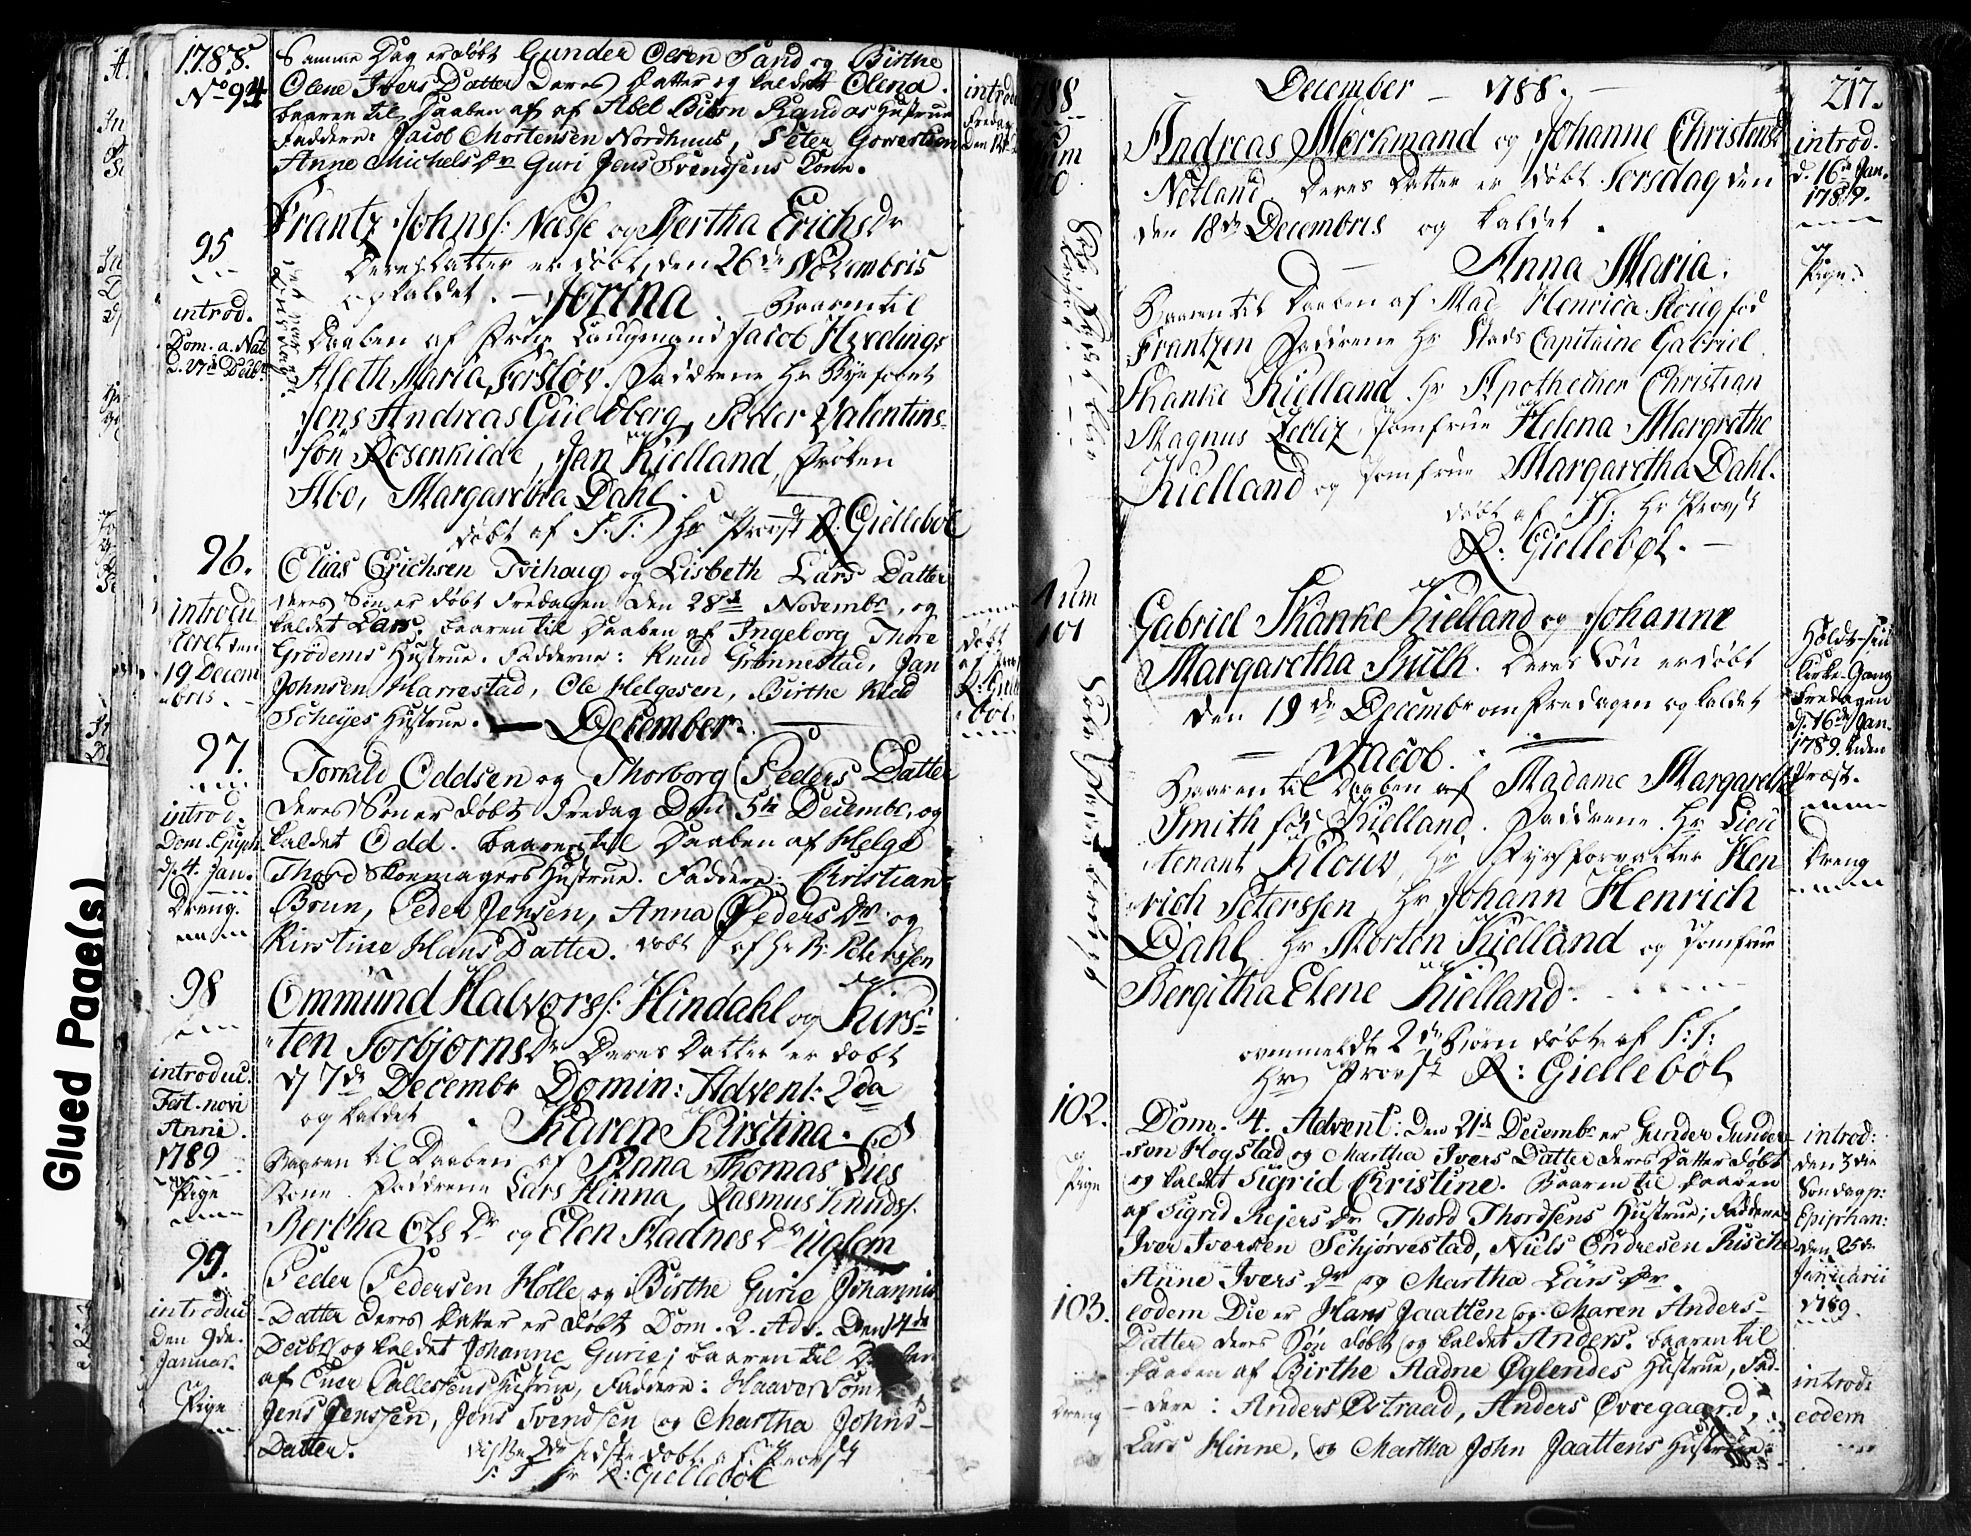 1788.
No 94
Samme Dag er døbt Gunder Olsen Sand og Birthe
Olene Ivers Datter Deres Datter og kaldet Olena.
baaren til Daaben af Abel Bitson Randas Hustrue
Faddere: Jacob Mortensen Nordhuus, Peter Gowertsen
Anne Michels Dr Guri Jens Svendsens Kone.
95
introd.
Dom. a. Nat
D. 27d Decbr
Frantz Johnss: Næsse og Bertha Erichs Dr
Deres Datter er døbt, den 26de Novembris
og kaldet. — Jorina Baaren til
Daaben af Laugmand Jacob Hveding
Aleth Maria Ferslöv. Faddrene Hr Byefoget
Jens Andreas Guldberg, Peder Valentins
søn Rosenkilde, Jan Kielland,
Abo, Margaretha Dahl.
døbt af S:T: Hr Provst R: Giellebøl
96.
introdu
19 Decem
bris.
Elias Erichsen Tvihoug og Lisbeth Lars Datter
deres Søn er døbt Fredagen den 28de Novembr, og
kaldet Lars. baaren til Daaben af Ingeborg Thore
Grödems Hustrue. Fadderne: Knud Grønnestad, Jan
Johnsen Harrestad, Ole Helgesen, Birthe
Scheyes Hustrue. — December. —
97.
introd.
Dom. Epiph
d. 4. Jan.
Dreng.
Torkild Oddsen og Thorborg Peders Datter
deres Søn er døbt Fredag Den 5te Decembr, og
kaldet Odd. baaren til Daaben af Helge
Thord Skoemagers Hustrue. Faddere: Christian
Brun, Peder Jensen, Anna Peders Dr og
Kirstine Hans Datter. døbt af Hr N: Peterssen
98
introduc.
Fest. novi
Anni.
1789
Pige
Ommund Halvorss: Hindahl og Kirs-
ten Torbjørns Dr Deres Datter er døbt
d 7de Decembr Domin: Advent: 2da
og kaldet Karen Kirstina.
Baaren til Daaben af Anna Thomas Lies
Kone. Faddrene Lars Hinna, Rasmus Knudss.
Bertha Ols Dr og Elen Aadnes Dr Uglem
99.
introduc
Den 9de
Januar.
Pige
Peder Pedersen Holle og Birthe Gurie Johannis
Datter deres Datter er døbt Dom. 2. Adv. Den
Decbr og kaldet Johanne Gurie; baaren til
af Ener Pallessens Hustrue, Faddere: Haavor
Jens Jenssen, Jens Svendsen og Martha Johns-
Datter. disse 2de sidste døbt af Provst
S. T. Hr R: Giellebøl
December — 1788. —
217.
Andreas Mörkmand og Johanne Christensd
Netland Deres Datter er døbt Torsdag den
den 18de Decembris og kaldet
Anna Maria.
Baaren til Daaben af Mad: Henrica Skoug fød
Frantzen Faddrene Hr Stads Capitaine Gabriel
Skanke Kielland. Hr Apothecker Christian
Magnus Zetlitz, Jomfrue Helena Margrethe
Kielland og Jomfrue Margaretha Dahl.
døbt af S.T. Hr Provst
R: Giellebøl. —
introd.
d. 16d Jan.
1789.
Pige.
Num
101
Gabriel Skanke Kielland og Johanne
Margaretha Bulk. Deres Søn er døbt
den 19de Decembr om Fredagen og kaldet
— Jacob. —
Baaren til Daaben af Madame Margaretha
Smith fød Kielland. Faddrene. Hr Lieu
tenant Klouv, Hr Hen
rich Peterssen, Hr Johann Henrich
Dahl. Hr Morten Kielland og Jomfrue
Bergitha Elene Kielland.
ovenmeldte 2de Børn døbt af S:T:
Hr Provst R: Giellebøl
Kirke-Gang
Fredagen
d. 16de Jan.
1789. Uden
Præst.
Dreng
102.
Pige
Dom. 4. Advent: Den 21de Decembr er Gunder Gunder-
son Hogstad og Martha Ivers Datter deres Datter døbt
og kaldet Sigrid Christine. Baaren til Daaben
af Sigrid Rejers Dr Thord Thordsens Hustrue; Faddere
Iver Iversen Schjørvestad, Niels Endresen Rische
Anne Ivers Dr og Martha Lars Dr.
introd:
den 3die
Søndag p:
Epiphan:
den 25de
Januarii
1789.
103.
Dreng
eodem Die er Hans Jaatten og Maren Anders-
Datter deres Søn døbt og kaldet Anders. baaren til
Daaben af Birthe Aadne Øglendes Hustrue, Fad-
dere: Anders Østraad, Anders Øvregaard,
Lars Hinne, og Martha John Jaattens Hustrue.
introd:
eodem
Glued Page(s)